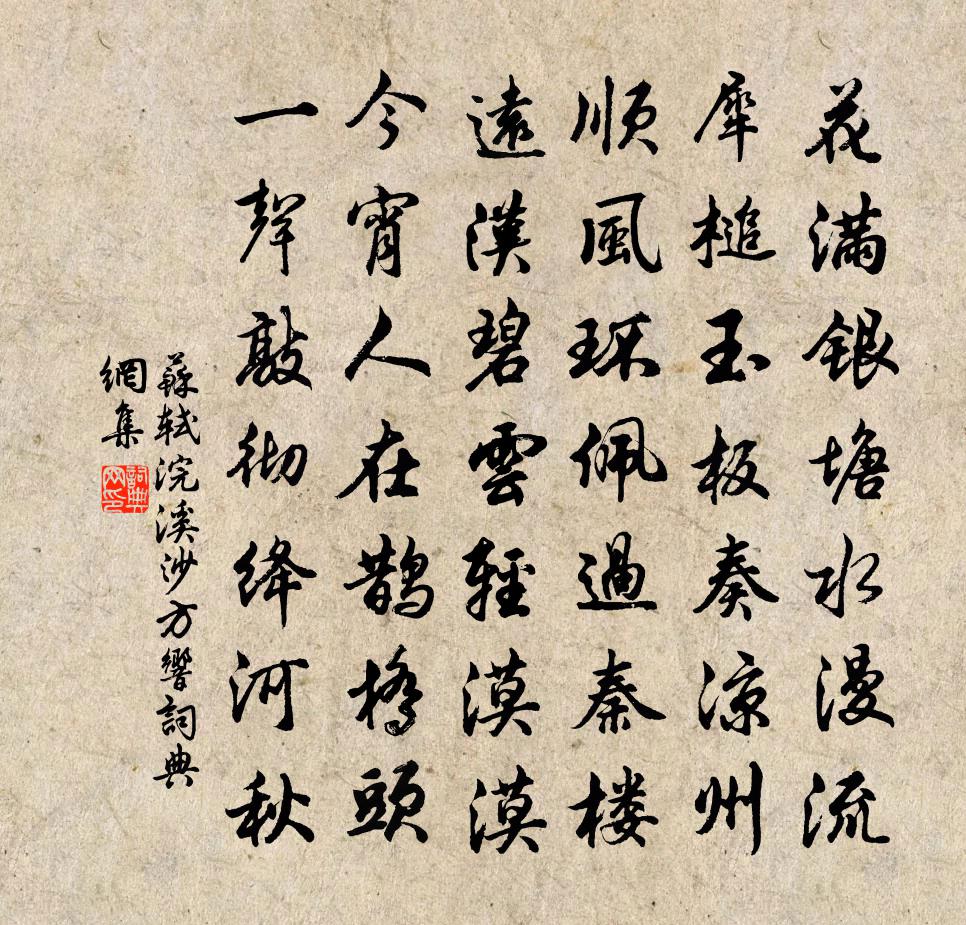 花滿銀塘水漫流
犀槌玉板奏凉州
順風環佩過秦楼
遠漢碧雲輕漠漠
今宵人在鵲橋頭
一聲敲彻绛河秋
蘇軾浣溪沙方響詞典
網集
詞典
网印